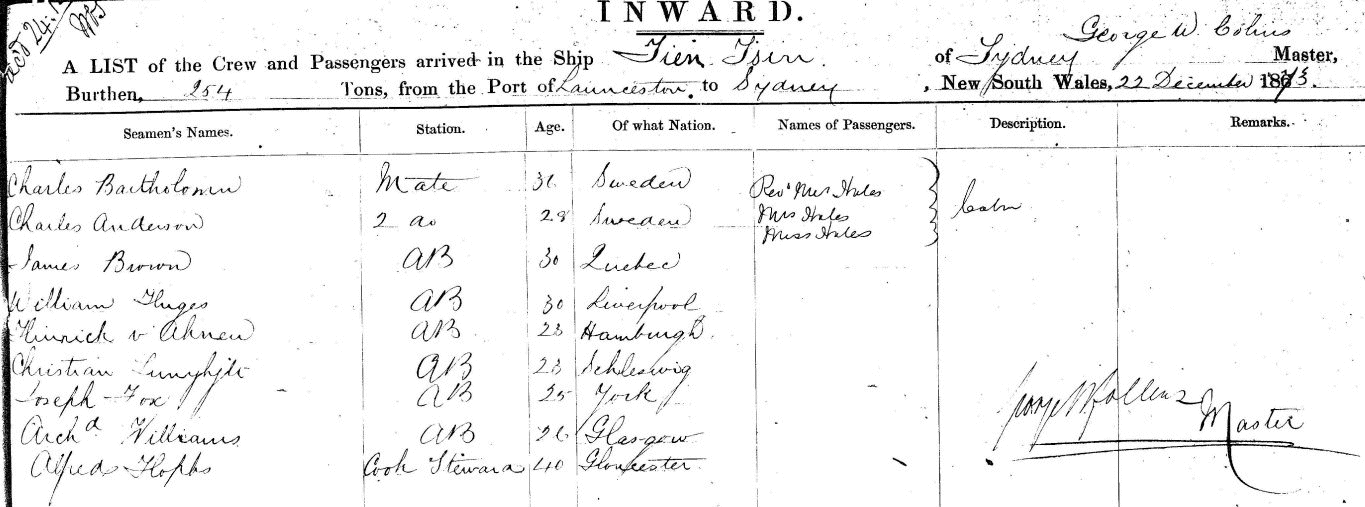 INWARD.
George W Colins
A LIST of the Crew and Passengers arrived in the Ship Tien Tsin of Sydney Master,
Burthen, 254 Tons, from the Port of Launceston to Sydney, New South Wales, 22 December 1873.
Seamen's Names. Station. Age. Of what Nation. Names of Passengers. Description. Remarks.
Charles Bartholomew Mate Sweden Revd Mr Hales
Charles Anderson 2 do 28 Sweden Mrs Hales Cabin
Miss Hales
James Brown AB 30 Quebec
William Huges AB 30 Liverpool
Hinrick v Ahnen AB 23 Hamburgh
Christian AB 23 Schleswig
Joseph Fox AB 25 York
Archd Williams AB 26 Glasgow
George W Collins Master
Alfred Hopks Cook Steward 40 Gloucester